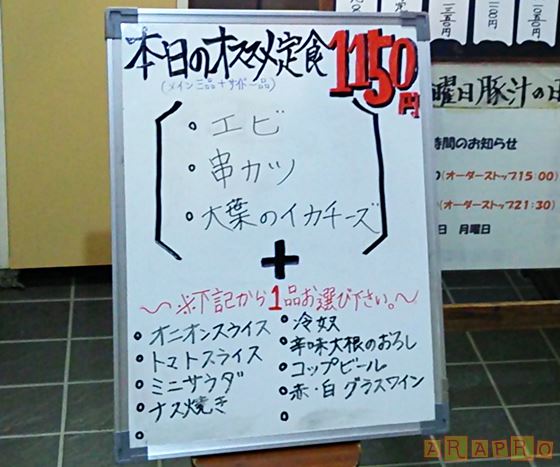 本日のオススメ定食 1150円
(メイン三品+サイド一品)
・エビ
・串カツ
・大葉のイカチーズ
+
〜※下記から1品お選び下さい。〜
・オニオンスライス
・トマトスライス
・ミニサラダ
・ナス焼き
・
・冷奴
・辛味大根のおろし
・コップビール
・赤・白 グラスワイン
・
曜日豚汁の日
時間のお知らせ
(オーダーストップ15:00)
(オーダーストップ21:30)
日 月曜日
ARAPRO